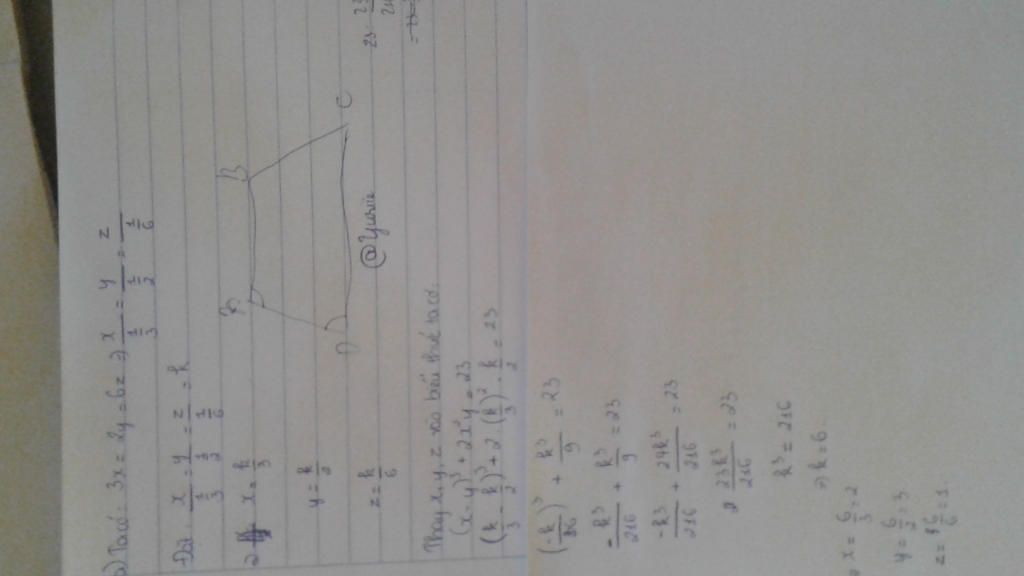 b) Ta có: 3x = 2y = 6z ⇒ x/(1/3) = y/(1/2) = z/(1/6)
Đặt: x/(1/3) = y/(1/2) = z/(1/6) = k
⇒ x = k/3
y = k/2
z = k/6
B
C
D
@Yumie
Thay x, y, z vào biểu thức ta có:
(x-y)³ + 2x²y = 23
(k/3 - k/2)³ + 2.(k/3)². k/2 = 23
+ k³/9 = 23
-k³/216 + k³/9 = 23
-k³/216 + 24k³/216 = 23
23k³/216 = 23
k³ = 216
⇒ k = 6
x = 6/3 = 2
y = 6/2 = 3
z = 6/6 = 1.